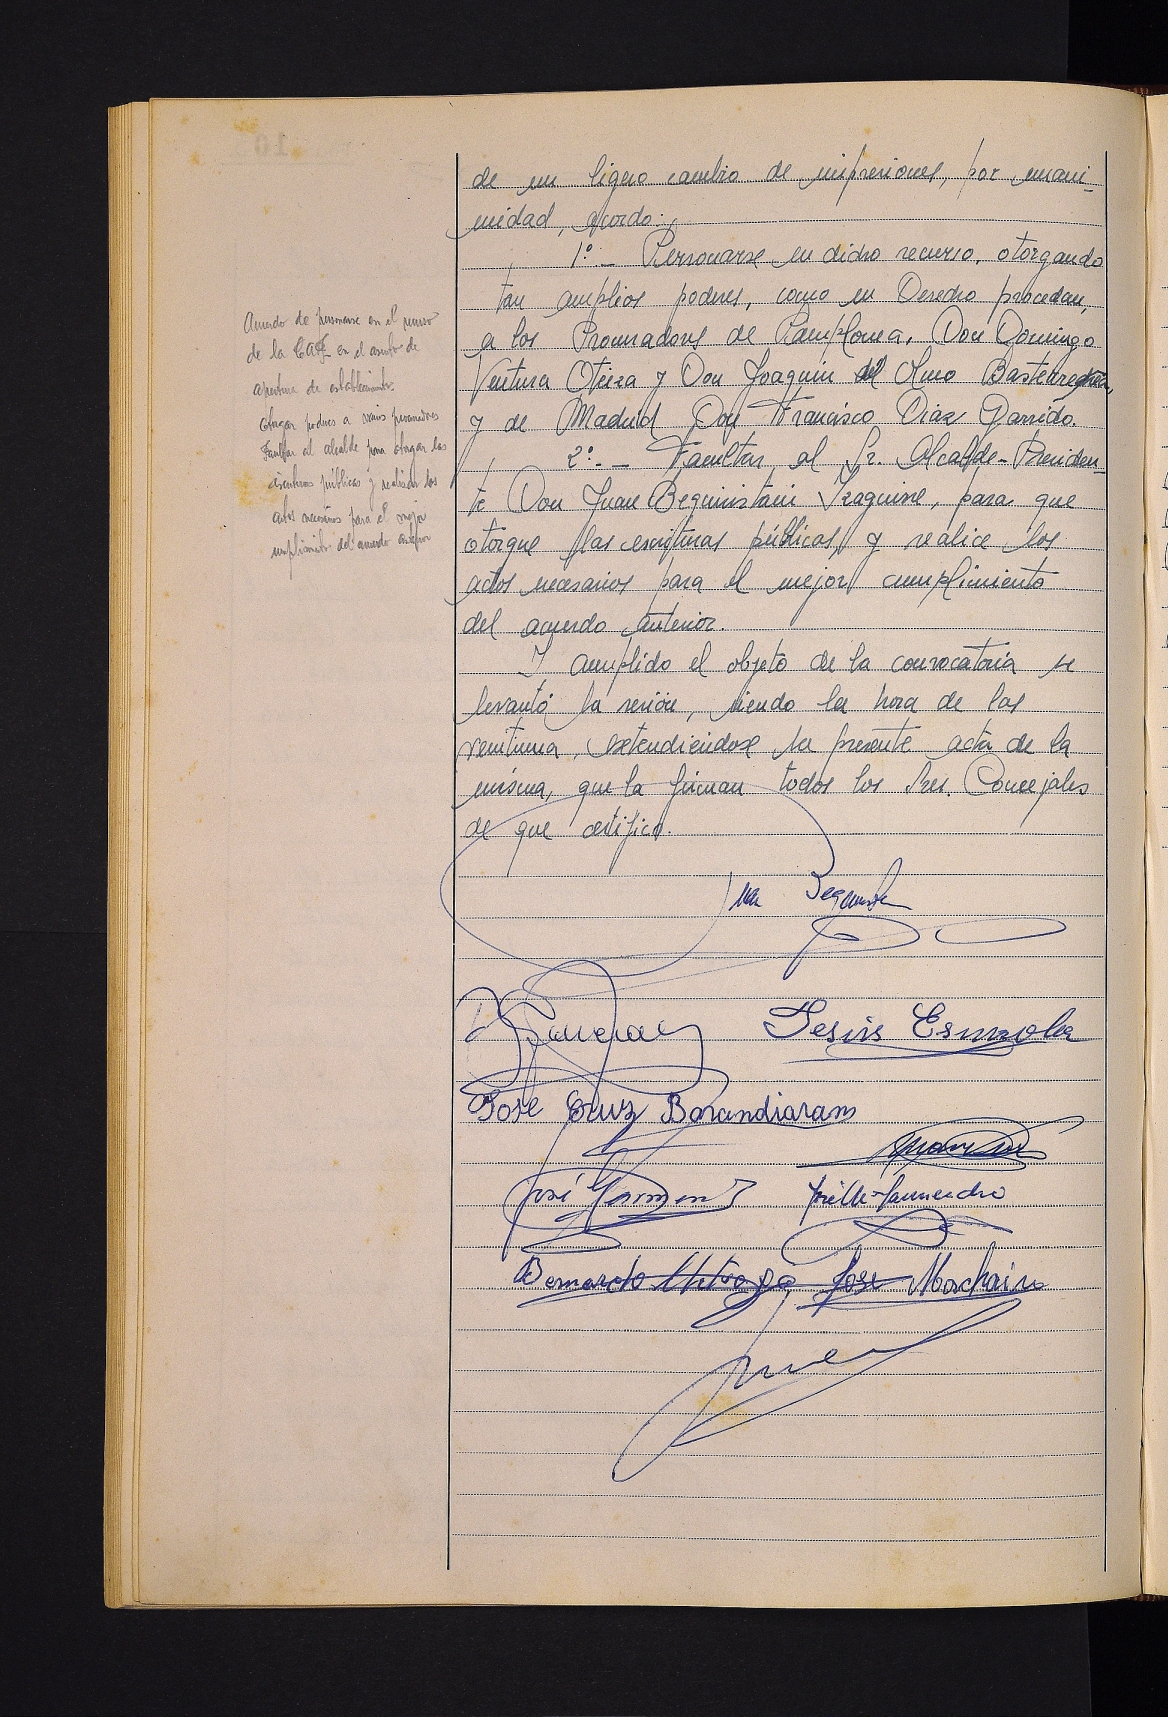 de un ligero cambio de impresiones, por unani-
midad, acordo:
1º.- Personarse en dicho recurso, otorgando
tan amplios poderes, como en Derecho procedan,
a los Procuradores de Pamplona, Don Domingo
Ventura Oteiza y Don Joaquin del Olmo Bastarrechea,
y de Madrid Don Francisco Diaz Garrido.
2º.- Facultar, al Sr. Alcalde-Presiden-
te Don Juan Beguiristain Izaguirre, para que
otorgue las escrituras públicas, y realice los
actos necesarios para el mejor cumplimiento
del acuerdo anterior.
Y cumplido el objeto de la convocatoria se
levantó la sesión, siendo la hora de las
veintiuna, extendiendose la presente acta de la
misma, que la firman todos los Sres. Concejales
de que certifico.
Acuerdo de personarse en el recurso
de la CAF en el asunto de
apertura de establecimiento
otorgar poderes a varios procuradores
Facultar al alcalde para otorgar las
escrituras públicas y realizar los
actos necesarios para el mejor
cumplimiento del acuerdo anterior
Jesús Esnaola
Jose Cruz Barandiaran
José
Bernardo Jose